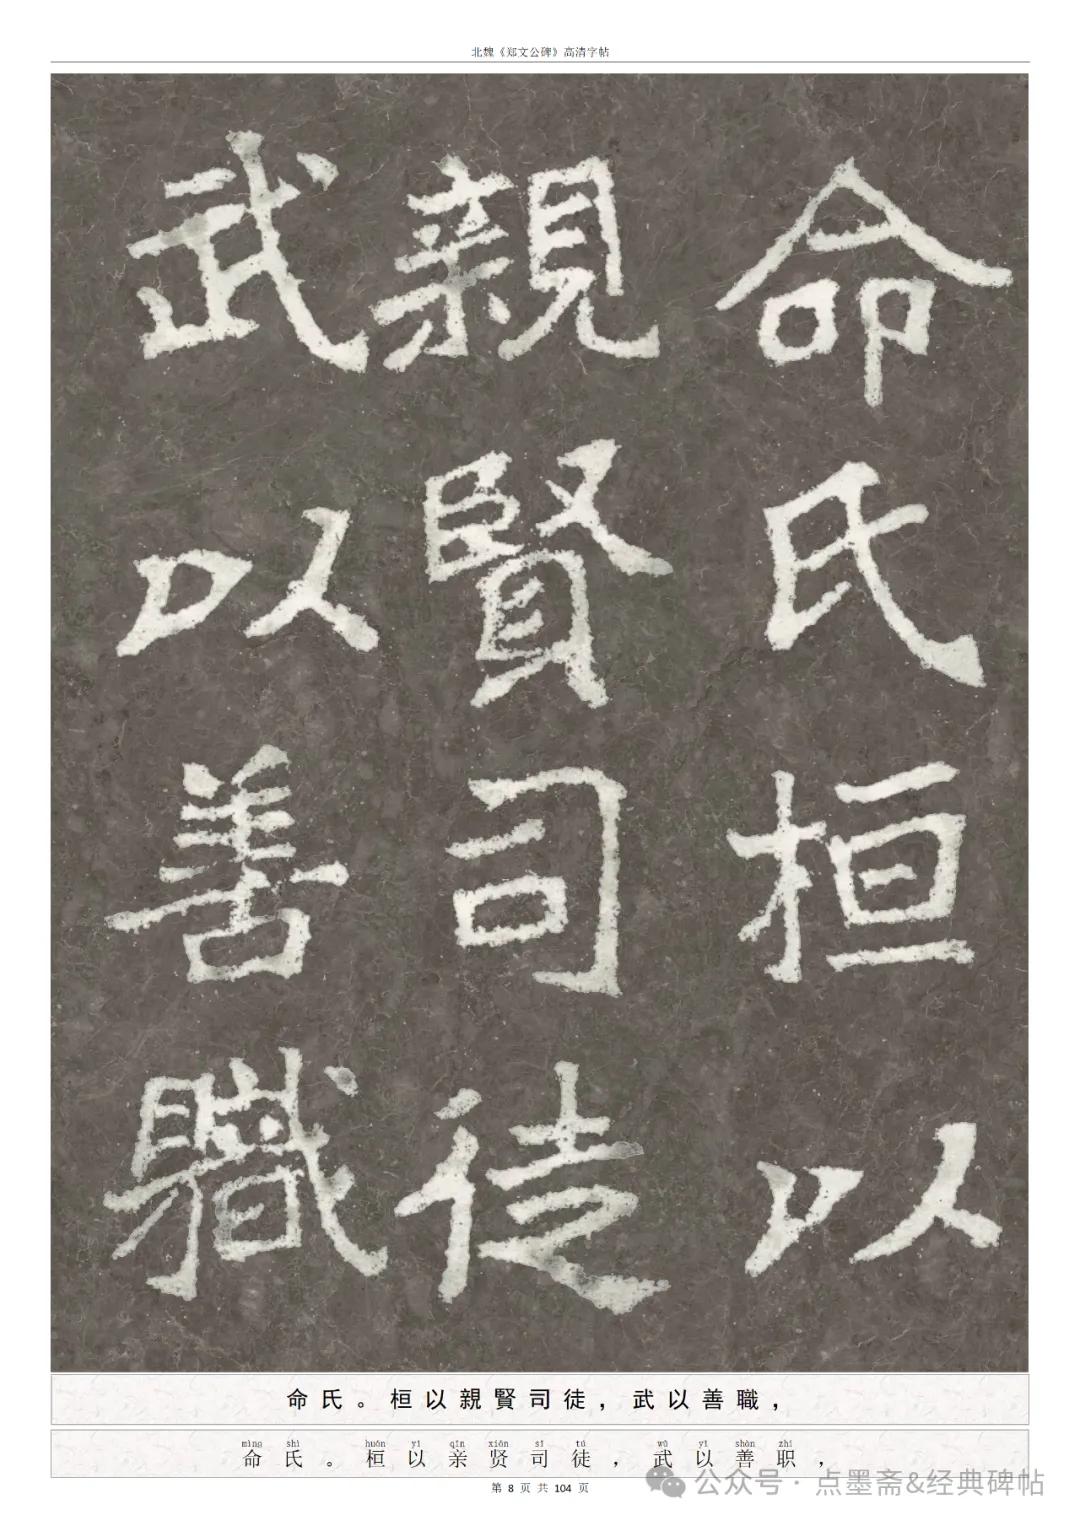 北魏《郑文公碑》高清字帖
命氏桓以
親賢司徒
武以善職
命氏。桓以親賢司徒，武以善職，
mìng shì huán yǐ qīn xián sī tú wǔ yǐ shàn zhí
命氏。桓以亲贤司徒，武以善职，
第 8 页 共 104 页
公众号 · 点墨斋&经典碑帖